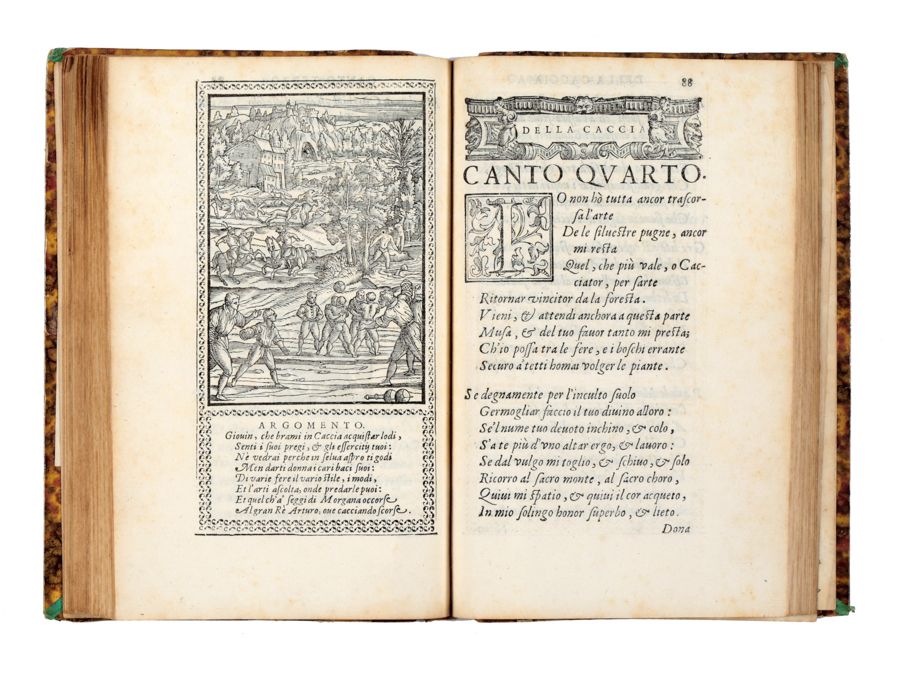 ARGOMENTO.
Giouin, che brami in Caccia acquistar lodi,
Senti i suoi pregi, & gli essercitij tuoi:
Nè vedrai perche in selua aspro ti godi
Men darti donna i cari baci suoi:
Di varie fere il vario stile, i modi,
Et l'arti ascolta, onde predarle puoi:
Et quel ch'a' seggi di Morgana occorse
Al gran Rè Arturo, oue cacciando scorse.
88
DELLA CACCIA
CANTO QVARTO.
IO non hò tutta ancor trascor-
sa l'arte
De le siluestre pugne, ancor
mi resta
Quel, che più vale, o Cac-
ciator, per farte
Ritornar vincitor da la foresta.
Vieni, & attendi anchora a questa parte
Musa, & del tuo fauor tanto mi presta;
Ch'io possa tra le fere, e i boschi errante
Securo a' tetti homai volger le piante.
Se degnamente per l'inculto suolo
Germogliar faccio il tuo diuino alloro:
Se'l nume tuo deuoto inchino, & colo,
S'a te più d'vno altar ergo, & lauoro:
Se dal vulgo mi toglio, & schiuo, & solo
Ricorro al sacro monte, al sacro choro,
Quiui mi spatio, & quiui il cor acqueto,
In mio solingo honor superbo, & lieto.
Dona